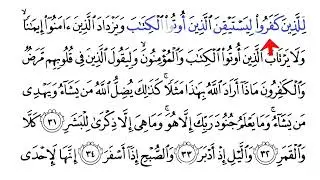 لِلَّذِينَ كَفَرُوا۟ لِيَسْتَيْقِنَ ٱلَّذِينَ أُوتُوا۟ ٱلْكِتَٰبَ وَيَزْدَادَ ٱلَّذِينَ ءَامَنُوٓا۟ إِيمَٰنًا ۙ
وَلَا يَرْتَابَ ٱلَّذِينَ أُوتُوا۟ ٱلْكِتَٰبَ وَٱلْمُؤْمِنُونَ ۙ وَلِيَقُولَ ٱلَّذِينَ فِى قُلُوبِهِم مَّرَضٌ
وَٱلْكَٰفِرُونَ مَاذَآ أَرَادَ ٱللَّهُ بِهَٰذَا مَثَلًا ۚ كَذَٰلِكَ يُضِلُّ ٱللَّهُ مَن يَشَآءُ وَيَهْدِى
مَن يَشَآءُ ۚ وَمَا يَعْلَمُ جُنُودَ رَبِّكَ إِلَّا هُوَ ۚ وَمَا هِىَ إِلَّا ذِكْرَىٰ لِلْبَشَرِ ٣١ كَلَّا
وَٱلْقَمَرِ ٣٢ وَٱلَّيْلِ إِذْ أَدْبَرَ ٣٣ وَٱلصُّبْحِ إِذَآ أَسْفَرَ ٣٤ إِنَّهَا لَإِحْدَى